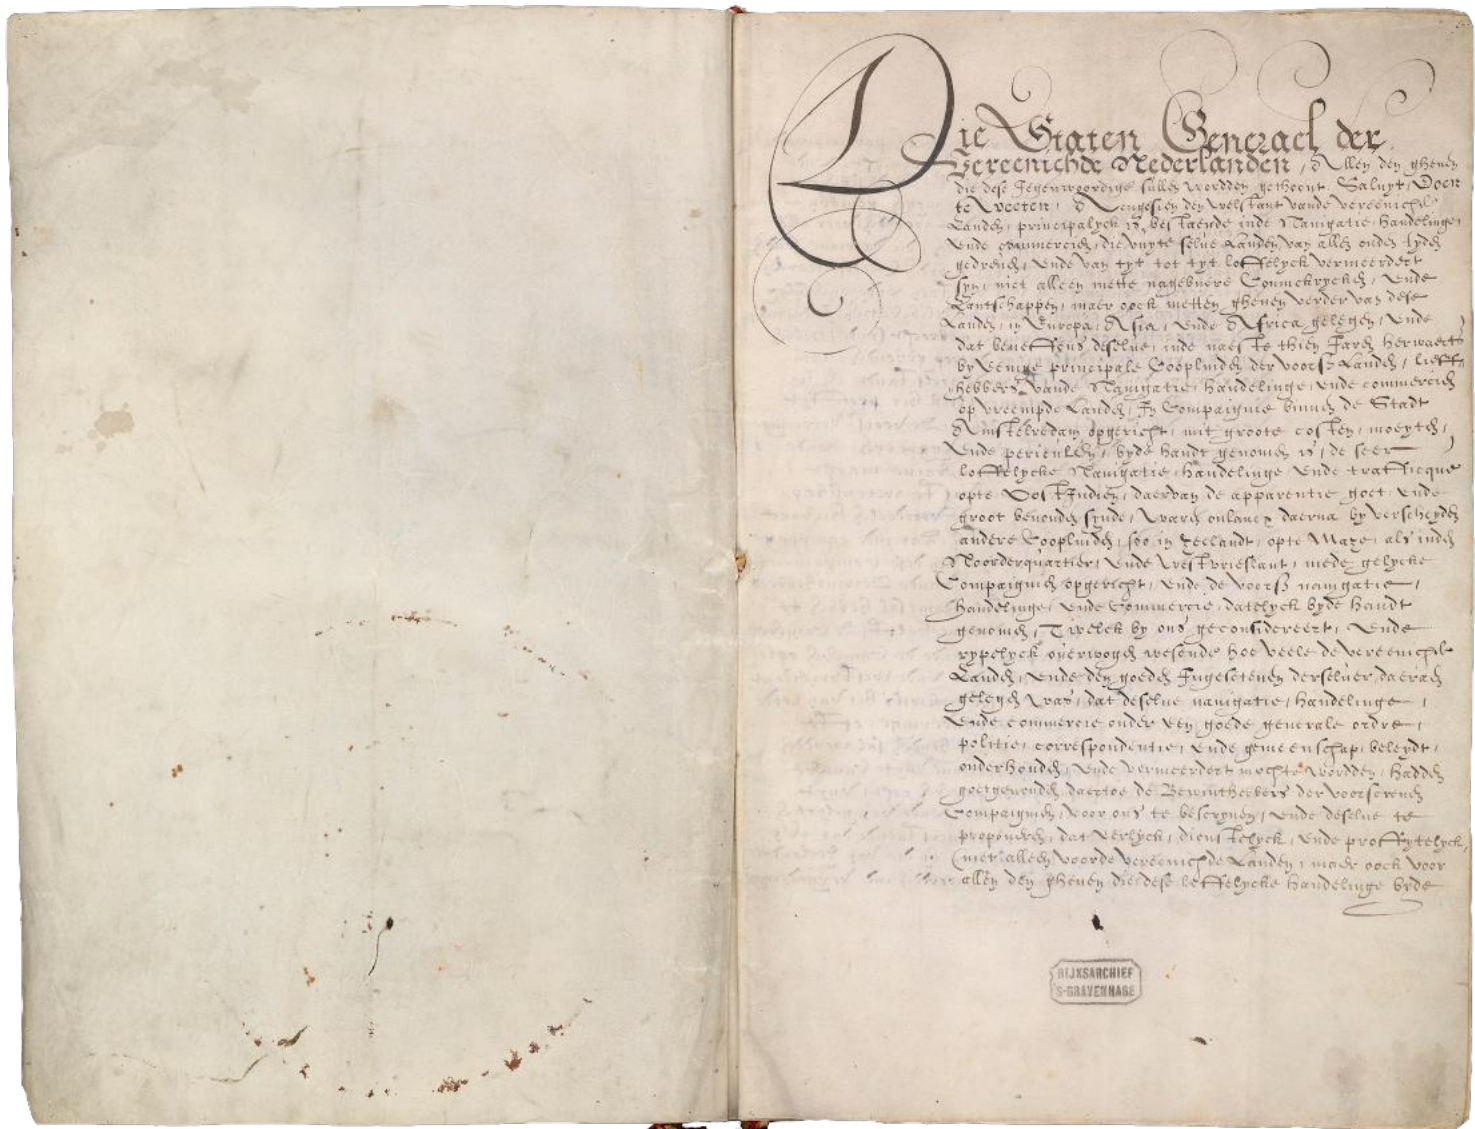 Die Staten Generael der
Vereenichde Nederlanden, Allen den ghenen
die dese Jegenwoordige sullen wordden gethoont, Saluyt, Doen
te weeten, Alzoegesien den welstant vande vereenichde
Landen, principalyck is bestaende inde Navigatie, handelinge,
ende commercien, die vuyte selve Landen van allen ouden tyden
gedreven, ende van tyt tot tyt loffelyck vermeerdert
syn, niet alleen mette nagebuere Coninckrycken, ende
Lantschappen, maer oock metten ghenen verder van dese
Landen, in Europa, Asia, ende Africa gelegen, ende
dat beneffens deselve, inde naeste thien Jaren herwaerts
by eenige principale Coopluiden der voorsz Landen, lieff-
hebbers vande Navigatie, handelinge, ende commercien
op vreempde Landen, In Compaignie binnen de Stadt
Amstelredam opgericht, mit groote costen, moeyten,
ende periculen, byde handt genomen is, de seer
loffelycke Navigatie, handelinge, ende trafficque
opte Oost Indien, daervan de apparentie goet, ende
groot bevonden synde, waren onlancx daerna by verscheyden
andere Coopluiden, soo in Zeelandt, opte Maze, als inden
Noorderquartier, ende westvrieslant, mede gelycke
Compaignien opgericht, ende de voorsz navigatie,
handelinge, ende Commercie, datelyck byde handt
genomen, Twelck by ons geconsidereert, ende
rypelyck overwogen wesende hoe veele de vereenichde
Landen, ende den goeden Ingesetenen derselver, daeraen
gelegen was, dat deselve navigatie, handelinge,
ende commercie onder een goede generale ordre,
politie, correspondentie, ende gemeenschap, beleydt,
onderhouden, ende vermeerdert mochte wordden, hadden
goetgevonden, daertoe de Bewinthebbers der voorscreven
Compaignien, voor ons te bescryven, ende deselve te
proponeren, dat eerlyck, dienstelyck, ende proffytelyck,
(niet alleen voorde vereenichde Landen, maer oock voor
allen den ghenen die dese loffelycke handelinge byde
RIJKSARCHIEF
'S-GRAVENHAGE